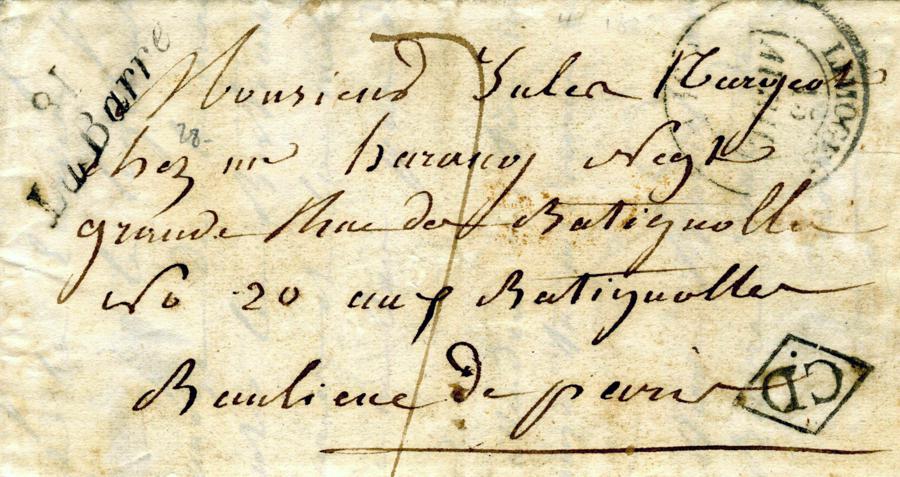 81
La Barre
Monsieur Jules
28
chez mr Negt
grande Rue des Batignolles
No 20 aux Batignolles
Banlieue de paris
LIMOGES
C.D.